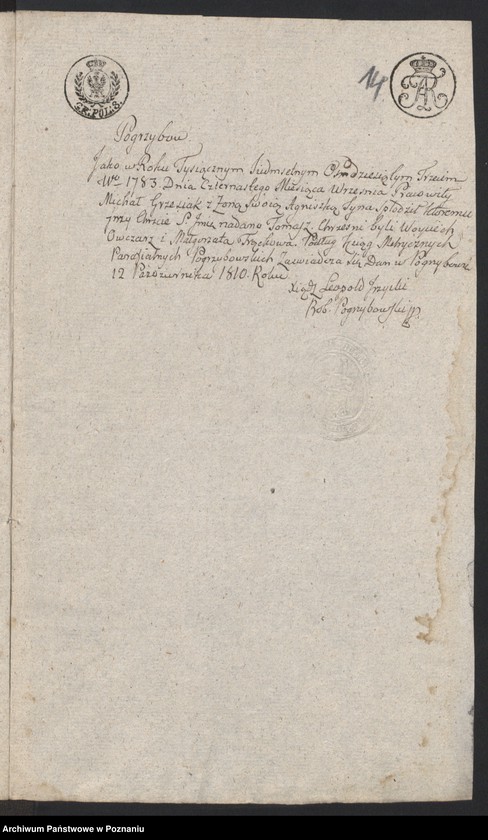 GR. POL. 8.
14
Pogrzybow
Jako w Roku Tysiącznym Siedmsetnym Trzecim
1783. Dnia Czternastego Miesiąca Wrzesnia Pracowity
Michał Grzesiak z Zoną Swoią Agniszką Syna Spłodził ktoremu
przy Chrcie S Imię nadano Tomasz. Chrzesni byli Woyciech
Owczarz i Małgorzata Podług Xiąg Metrycznych
Parafialnych Pogrzybowskich Zaswiadcza się Dan w Pogrzybowie
12 Pazdziernika 1810. Roku
Xiądz Leopold
Prob. Pogrzybowski
Archiwum Państwowe w Poznaniu